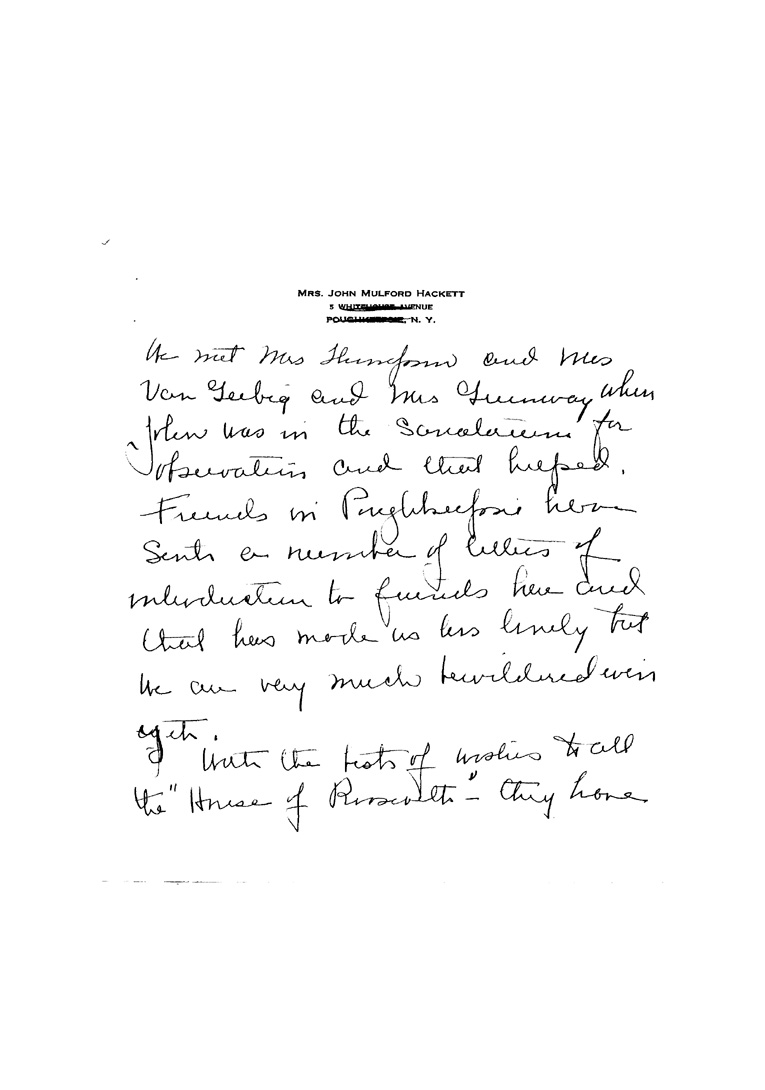 MRS. JOHN MULFORD HACKETT
5 WHITEHOUSE AVENUE
POUGHKEEPSIE, N. Y.
We met Mrs and Mrs
Van and Mrs Greenway when
John was in the Sanatarium for
observation and that helped.
Friends in Poughkeepsie have
sent a number of letters of
introduction to friends here and
that has made us less lonely but
we are very much bewildered even
yet.
With the best of wishes to all
the "House of Roosevelt" - they have